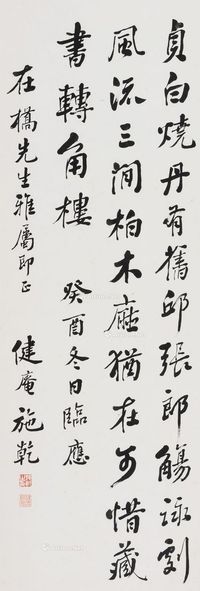 貞白燒丹有舊邱張郎觴詠劇
風流三澗柏木應猶在可惜藏
書轉角樓
癸酉冬日臨應
在橋先生雅屬即正
健庵施乾